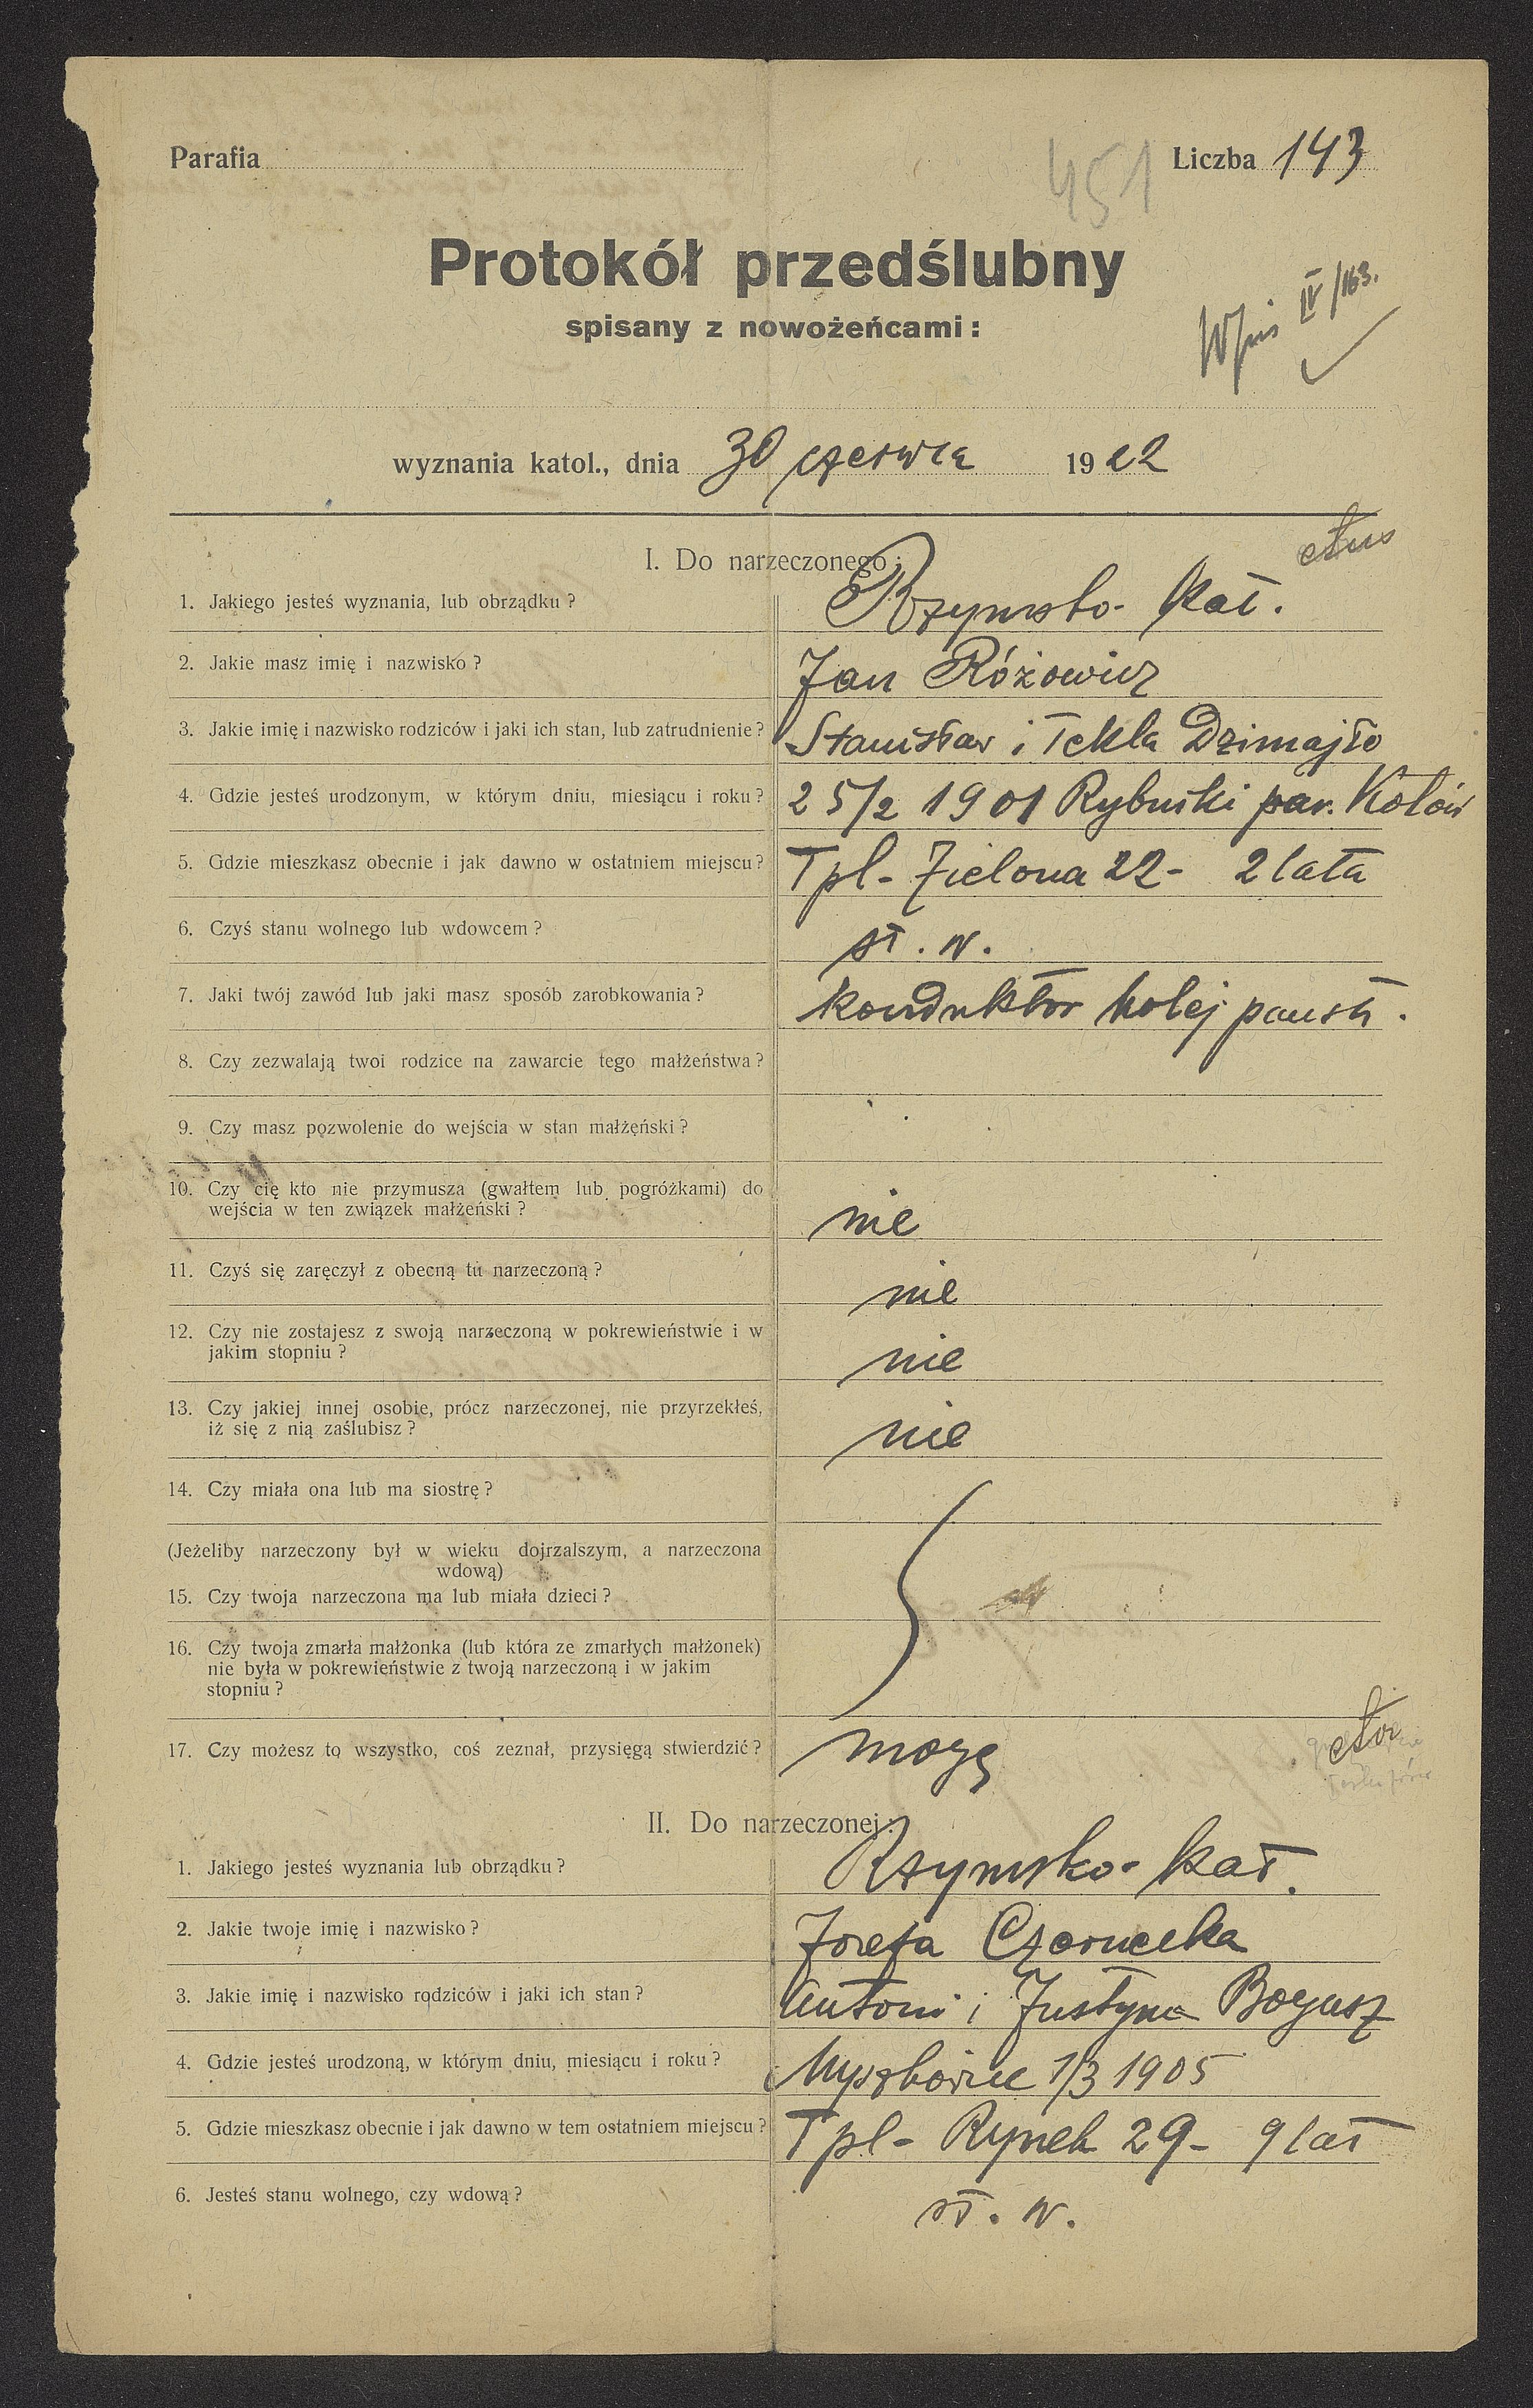 Parafia
451
Liczba 143
Protokół przedślubny
spisany z nowożeńcami:
Wpis IV/163.
wyznania katol., dnia 30 czerwca 1922
I. Do narzeczonego:
1. Jakiego jesteś wyznania, lub obrządku? Rzymsko-kat.
2. Jakie masz imię i nazwisko? Jan Różowicz
3. Jakie imię i nazwisko rodziców i jaki ich stan, lub zatrudnienie? Stanisław i Tekla Dzimajło
4. Gdzie jesteś urodzonym, w którym dniu, miesiącu i roku? 25/2 1901 Rybniki par.
5. Gdzie mieszkasz obecnie i jak dawno w ostatniem miejscu? Tpl- Zielona 22- 2 lata
6. Czyś stanu wolnego lub wdowcem? st. w.
7. Jaki twój zawód lub jaki masz sposób zarobkowania? konduktor kolej państ.
8. Czy zezwalają twoi rodzice na zawarcie tego małżeństwa?
9. Czy masz pozwolenie do wejścia w stan małżeński?
10. Czy cię kto nie przymusza (gwałtem lub pogróżkami) do
wejścia w ten związek małżeński? nie
11. Czyś się zaręczył z obecną tu narzeczoną? nie
12. Czy nie zostajesz z swoją narzeczoną w pokrewieństwie i w
jakim stopniu? nie
13. Czy jakiej innej osobie, prócz narzeczonej, nie przyrzekłeś,
iż się z nią zaślubisz? nie
14. Czy miała ona lub ma siostrę?
(Jeżeliby narzeczony był w wieku dojrzalszym, a narzeczona
wdową)
15. Czy twoja narzeczona ma lub miała dzieci?
16. Czy twoja zmarła małżonka (lub która ze zmarłych małżonek)
nie była w pokrewieństwie z twoją narzeczoną i w jakim
stopniu?
17. Czy możesz to wszystko, coś zeznał, przysięgą stwierdzić? mogę
II. Do narzeczonej:
1. Jakiego jesteś wyznania lub obrządku? Rzymsko-kat.
2. Jakie twoje imię i nazwisko? Józefa Czarnecka
3. Jakie imię i nazwisko rodziców i jaki ich stan? Antoni i Justyna Bogusz
4. Gdzie jesteś urodzoną, w którym dniu, miesiącu i roku? Myszkowice 1/3 1905
5. Gdzie mieszkasz obecnie i jak dawno w tem ostatniem miejscu? Tpl- Rynek 29- 9 lat
6. Jesteś stanu wolnego, czy wdową? st. w.